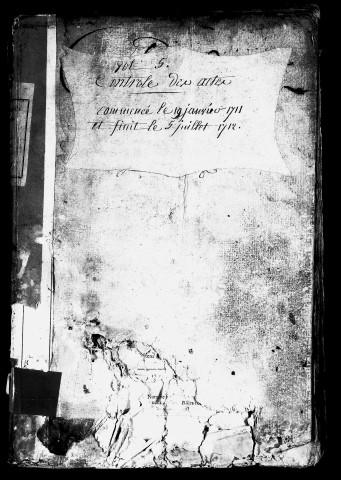 vol 5.
Controle des actes
commencé le 19 janvier 1711
et finit le 5 juillet 1712.